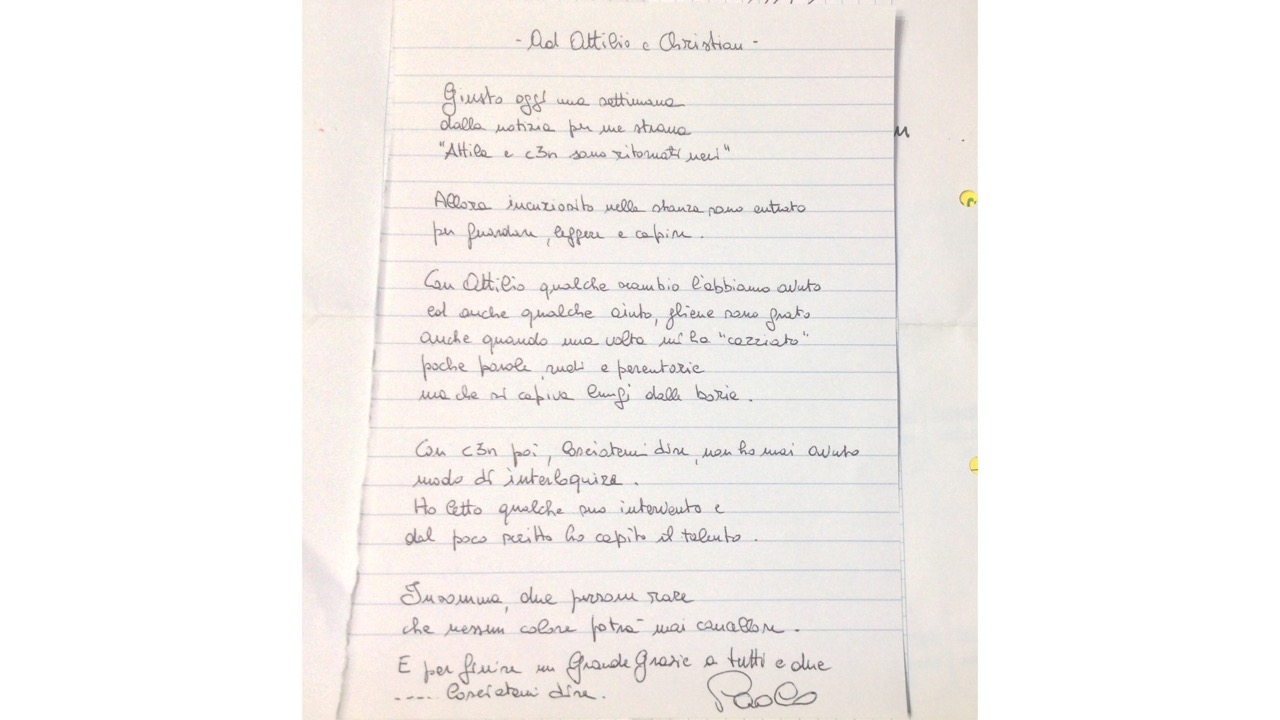 - Ad Attilio e Christian -
Giusto oggi una settimana
dalla notizia per me strana
"Attila e c3n sono ritornati neri"
Allora incuriosito nella stanza sono entrato
per guardare, leggere e capire.
Con Attilio qualche scambio l'abbiamo avuto
ed anche qualche aiuto, gliene sono grato
anche quando una volta mi ha "cazziato"
poche parole, rudi e perentorie
ma che si capiva lungi dalle borie.
Con c3n poi, lasciatemi dire, non ho mai avuto
modo di interloquire.
Ho letto qualche suo intervento e
dal poco scritto ho capito il talento.
Insomma, due persone rare
che nessun colore potrà mai cancellare.
E per finire un Grande Grazie a tutti e due
.... lasciatemi dire.
Paolo